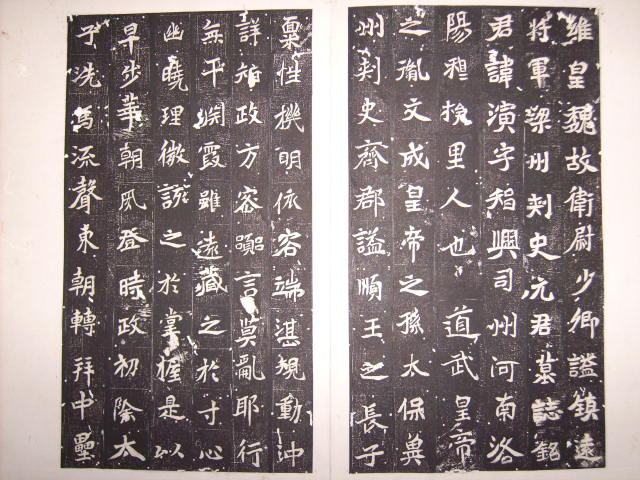 維皇魏故衛尉少卿謚鎮遠
將軍梁州刾史元君墓誌銘
君諱演字智興司州河南洛
陽里人也道武皇帝
之胤文成皇帝之孫太保冀
州刾史齊郡謚順王之長子
稟性機明依容端湛規動沖
詳智政方容言莫亂耶行
無平霞雖遠藏之於寸心
幽曉理微該之於掌握是以
早步華朝夙登時政初除太
子洗馬流聲東朝轉拜中壘